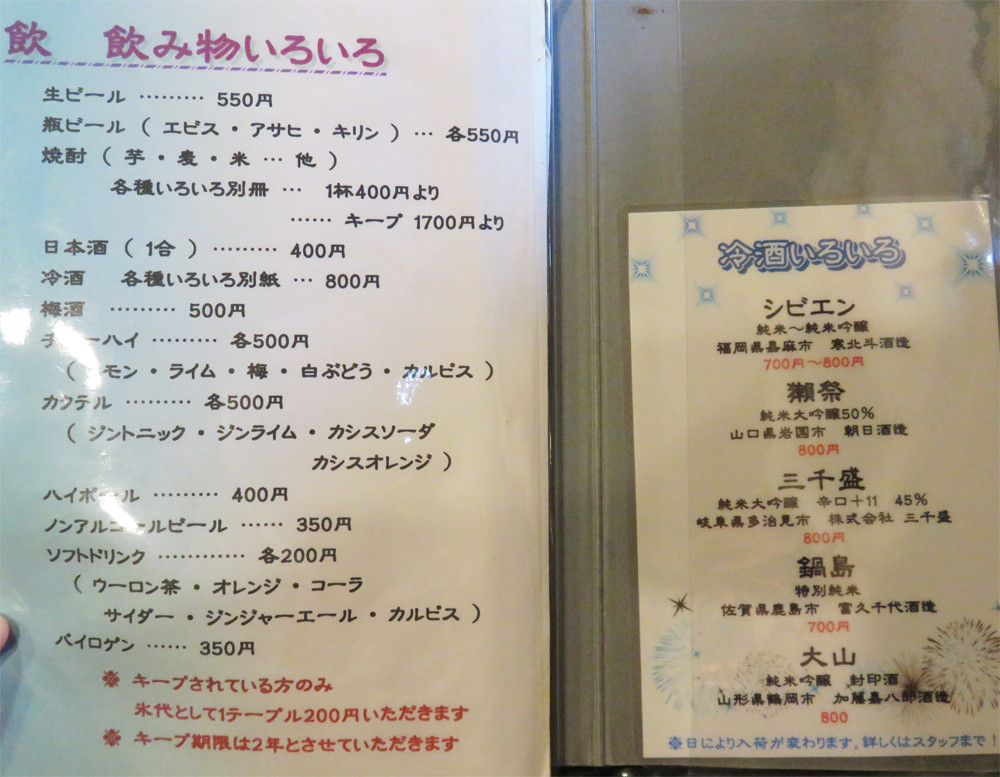 飲 飲み物いろいろ
生ビール ……… 550円
瓶ビール ( エビス・アサヒ・キリン ) … 各550円
焼酎 ( 芋・麦・米 … 他 )
各種いろいろ別冊 … 1杯400円より
…… キープ 1700円より
日本酒 ( 1合 ) ……… 400円
冷酒 各種いろいろ別紙 … 800円
梅酒 ……… 500円
チューハイ ……… 各500円
( レモン・ライム・梅・白ぶどう・カルピス )
カクテル ……… 各500円
( ジントニック・ジンライム・カシスソーダ
カシスオレンジ )
ハイボール ……… 400円
ノンアルコールビール …… 350円
ソフトドリンク ………… 各200円
( ウーロン茶・オレンジ・コーラ
サイダー・ジンジャーエール・カルピス )
バイロゲン …… 350円
※ キープされている方のみ
氷代として1テーブル200円いただきます
※ キープ期限は2年とさせていただきます
冷酒いろいろ
シビエン
純米~純米吟醸
福岡県嘉麻市 寒北斗酒造
700円~800円
獺祭
純米大吟醸50%
山口県岩国市 朝日酒造
800円
三千盛
純米大吟醸 辛口+11 45%
岐阜県多治見市 株式会社 三千盛
800円
鍋島
特別純米
佐賀県鹿島市 富久千代酒造
700円
大山
純米吟醸 封印酒
山形県鶴岡市 加藤嘉八郎酒造
800
※日により入荷が変わります。詳しくはスタッフまで!